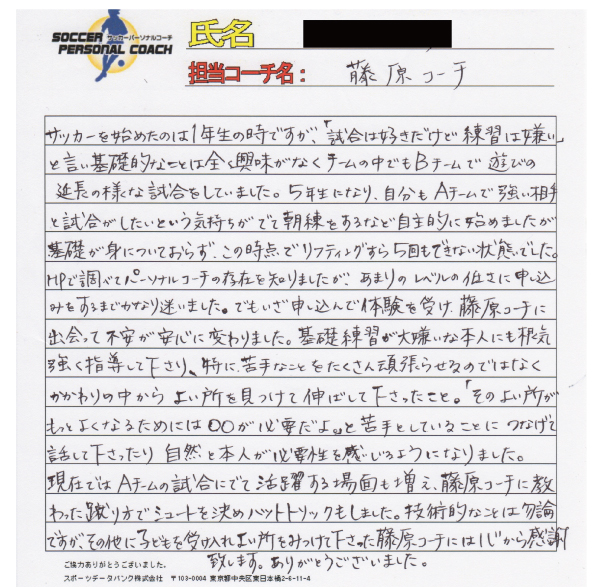 SOCCER サッカーパーソナルコーチ
PERSONAL COACH
氏名
担当コーチ名： 藤原コーチ
サッカーを始めたのは1年生の時ですが、「試合は好きだけど練習は嫌い」
と言い基礎的なことは全く興味がなくチームの中でもBチームで遊びの
延長の様な試合をしていました。5年生になり、自分もAチームで強い相手
と試合がしたいという気持ちがでて朝練をするなど自主的に始めましたが
基礎が身についておらず、この時点でリフティングすら5回もできない状態でした。
HPで調べてパーソナルコーチの存在を知りましたが、あまりのレベルの低さに申し込
みをするまでかなり迷いました。でもいざ申し込んで体験を受け藤原コーチに
出会って不安が安心に変わりました。基礎練習が大嫌いな本人にも根気
強く指導して下さり、特に苦手なことをたくさん頑張らせるのではなく
かかわりの中からよい所を見つけて伸ばして下さったこと。「そのよい所が
もっとよくなるためには〇〇が必要だよ。」と苦手としていることにつなげて
話して下さったり自然と本人が必要性を感じるようになりました。
現在ではAチームの試合にでて活躍する場面も増え、藤原コーチに教
わった蹴り方でシュートを決めハットトリックもしました。技術的なことは勿論
ですが、その他に子どもを受け入れよい所をみつけて下さった藤原コーチには心から感謝
致します。ありがとうございました。
ご協力ありがとうございました。
スポーツデータバンク株式会社 〒103-0004 東京都中央区東日本橋2-6-11-4